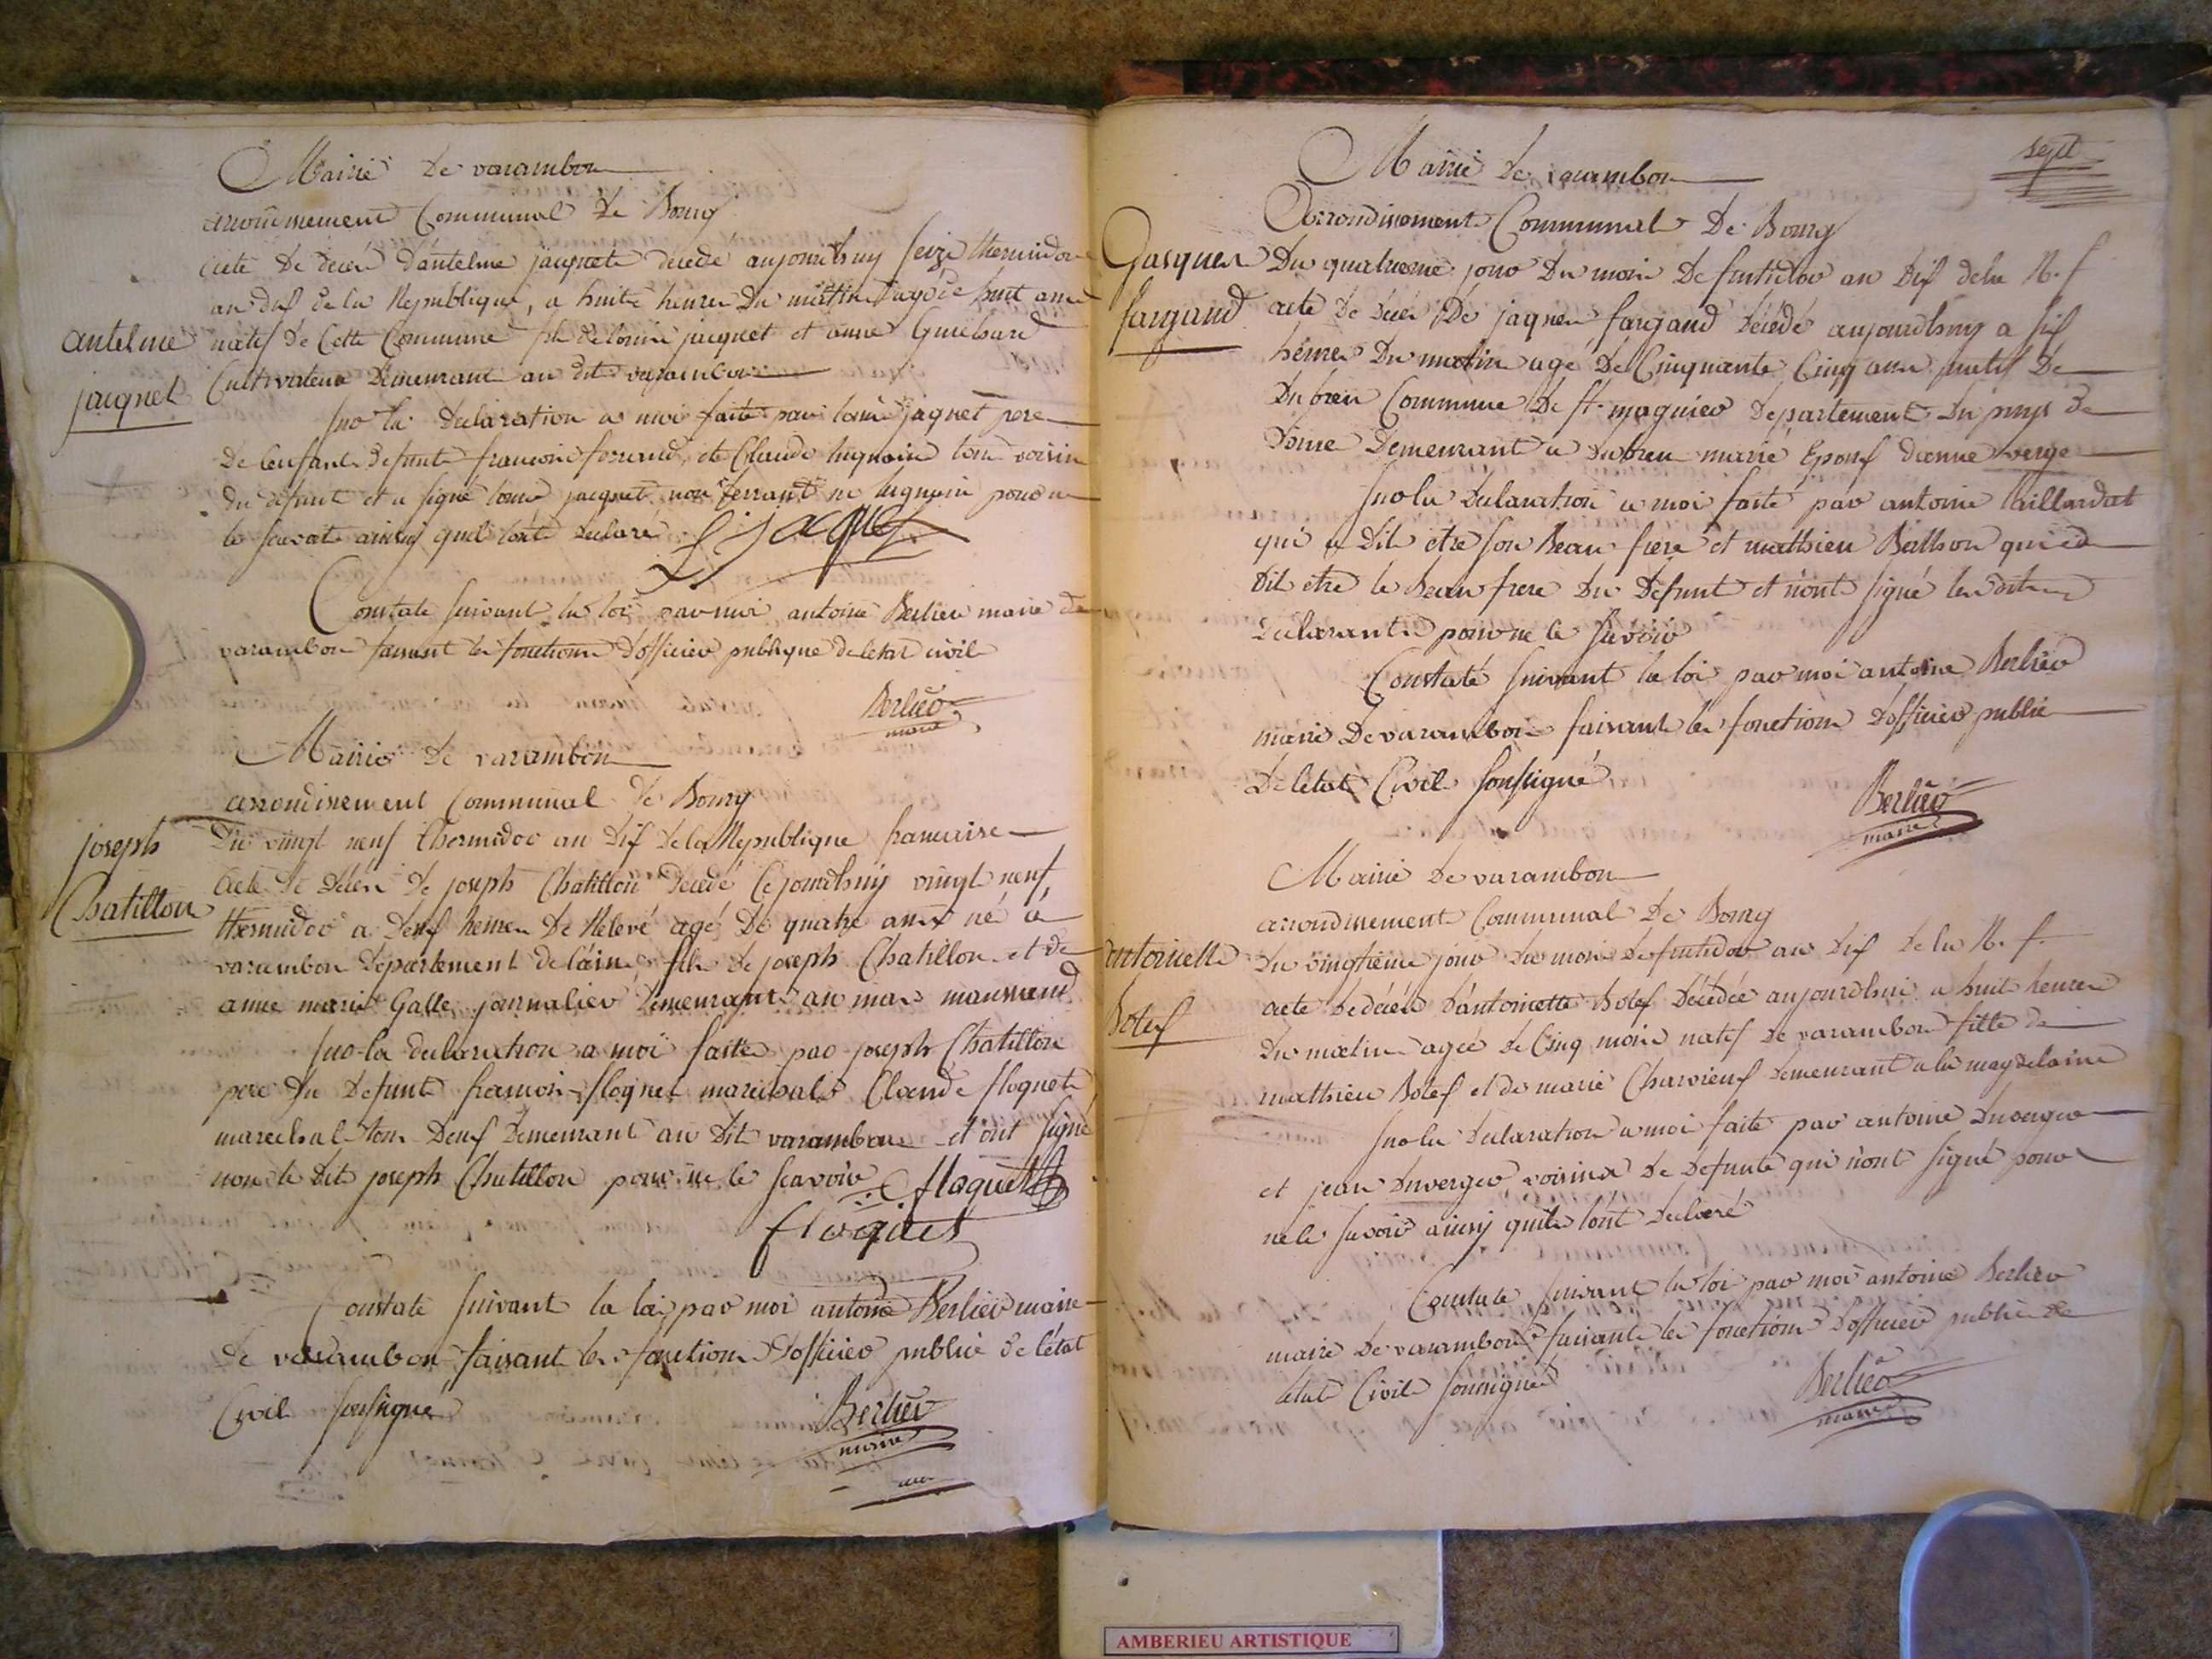 Mairie de varambon
arrondissement Communal de Bourg
acte de decés d'antelme jacquet decedé aujourdhuy seize thermidor
an dix de la Republique, a huit heures du matin agé de huit ans
antelme
jacquet
natif de Cette Commune fils de louis jacquet et anne Guichard
Cultivateur demeurant au dit varambon
sur la declaration a moi faite par louis jaquet pere
de lenfant defunt francois ferrand et Claude hugnoin tous voisin
du defunt et a signé louis jacquet non ferrant ni hugnoin pour ne
le scavoir ainsy quil lont declaré
L jaquet
Constaté suivant la loi par moi antoine Berlier maire de
varambon faisant les fonctions d'officier publique de letat civil
Berlier
maire
Mairie de varambon
arrondissement Communal de Bourg
joseph
Chatillon
Du vingt neuf thermidor an dix de la Republique francaise
acte de décés de joseph Chatillon decedé Cejourdhuy vingt neuf
thermidor a deux heures de Relevé agé de quatre ans né a
varambon département de l'ain fils de joseph Chatillon et de
anne marie Galle journalier demeurant au mas
sur la declaration a moi faitte par joseph Chatillon
pere du defunt francois floquet marechal Claude floquet
marechal tous deux demeurant au dit varambon et ont signé
non le dit joseph Chatillon pour ne le scavoir floquet
floquet
Constaté suivant la loi par moi antoine Berlier maire
de varambon faisant les fonctions d'officier public de l'état
Civil soussigné
Berlier
maire
sept
Mairie de varambon
Arrondissement Communal De Bourg
Jasques
fargaud
Du quatrieme jour Du mois De fructidor an dix dela R. f
acte de decés De jaques fargaud décédé aujourdhuy a six
heures Du matin agé De Cinquante Cinq ans natif De
Dubreu Commune De St. maguier Departement Du puys de
Dome Demeurant a Dubreu marié Epoux danne verge
sur la Declaration a moi faite par antoine taillardat
qui a dit etre son Beau frere et mathieu Berthon qui a
dit etre le Beau frere Du Defunt et n'ont signé les dits
Declarants pour ne le savoir
Constaté suivant la loi par moi antoine Berlier
maire De varambon faisant les fonctions d'officier public
De létat Civil soussigné
Berlier
maire
Mairie De varambon
arrondissement Communal De Bourg
antoinette
Botex
Du vingtieme jour du mois de fructidor an dix De la R. f.
acte de decés d'antoinette Botex décédée aujourdhui a huit heures
Du matin agée de Cinq mois natif de varambon fille de
mathieu Botex et de marie Charvieux demeurant a la magdelaine
sur la Declaration a moi faite par antoine Duverger
et jean Duverger voisins de defunte qui n'ont signé pour
ne le savoir ainsy quils lont declaré
Constaté suivant la loi par moi antoine Berlier
maire De varambon faisant les fonctions d'officier public de
letat Civil soussigné
Berlier
maire
AMBERIEU ARTISTIQUE